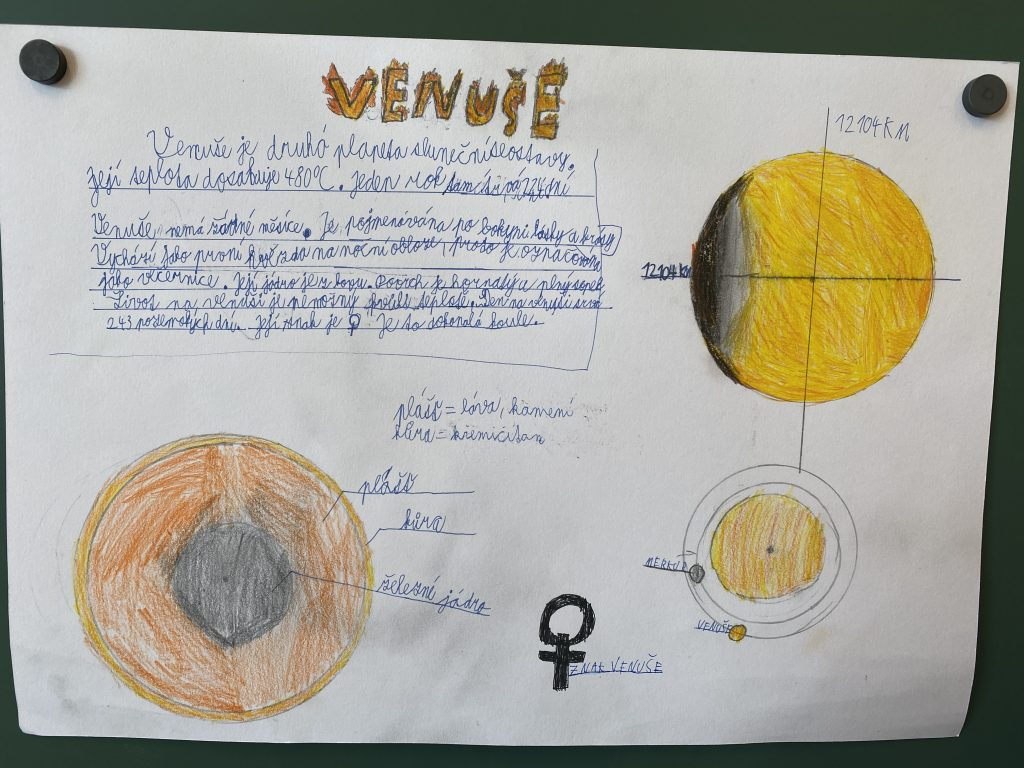 VENUŠE
12104KM
Venuše je druhá planeta sluneční soustavy.
Její teplota dosahuje 480°C. Jeden rok tam trvá 224 dní
Venuše nemá žádné měsíce. Je pojmenována po bohyni lásky a krásy
Vychází jako první hvězda na noční obloze, proto je označována
jako večernice. Její jádro je z kovu. Povrch je hornatý a plný sopek
Život na venuši je nemožný kvůli teplotě. Den na venuši trvá
243 pozemských dní. Její znak je ♀ Je to dokonalá koule.
12104km
plášť = láva, kamení
kůra = křemičitan
plášť
kůra
železné jádro
MERKUR
VENUŠE
ZNAK VENUŠE